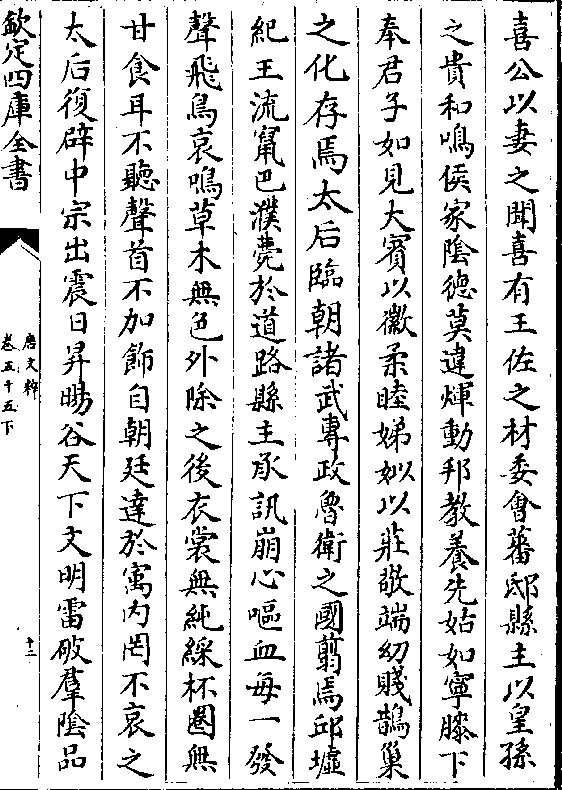 喜公以妻之聞喜有王佐之材委會蕃邸縣主以皇孫
之貴和鳴侯家陰德莫違煇動邦教養先姑如寧膝下
奉君子如見大賓以徽柔睦娣姒以莊敬端幼賤鵲巢
之化存焉太后臨朝諸武專政魯衛之國翦焉邱墟
紀王流竄巴濮薨於道路縣主承訊崩心嘔血每一發
聲飛鳥哀鳴草木無色外除之後衣裳無純綵杯圈無
甘食耳不聽聲首不加飾自朝廷達於寓內罔不哀之
太后復辟中宗出震日昇暘谷天下文明雷破羣陰品
欽定四庫全書
唐文粹
卷五十五下
十二